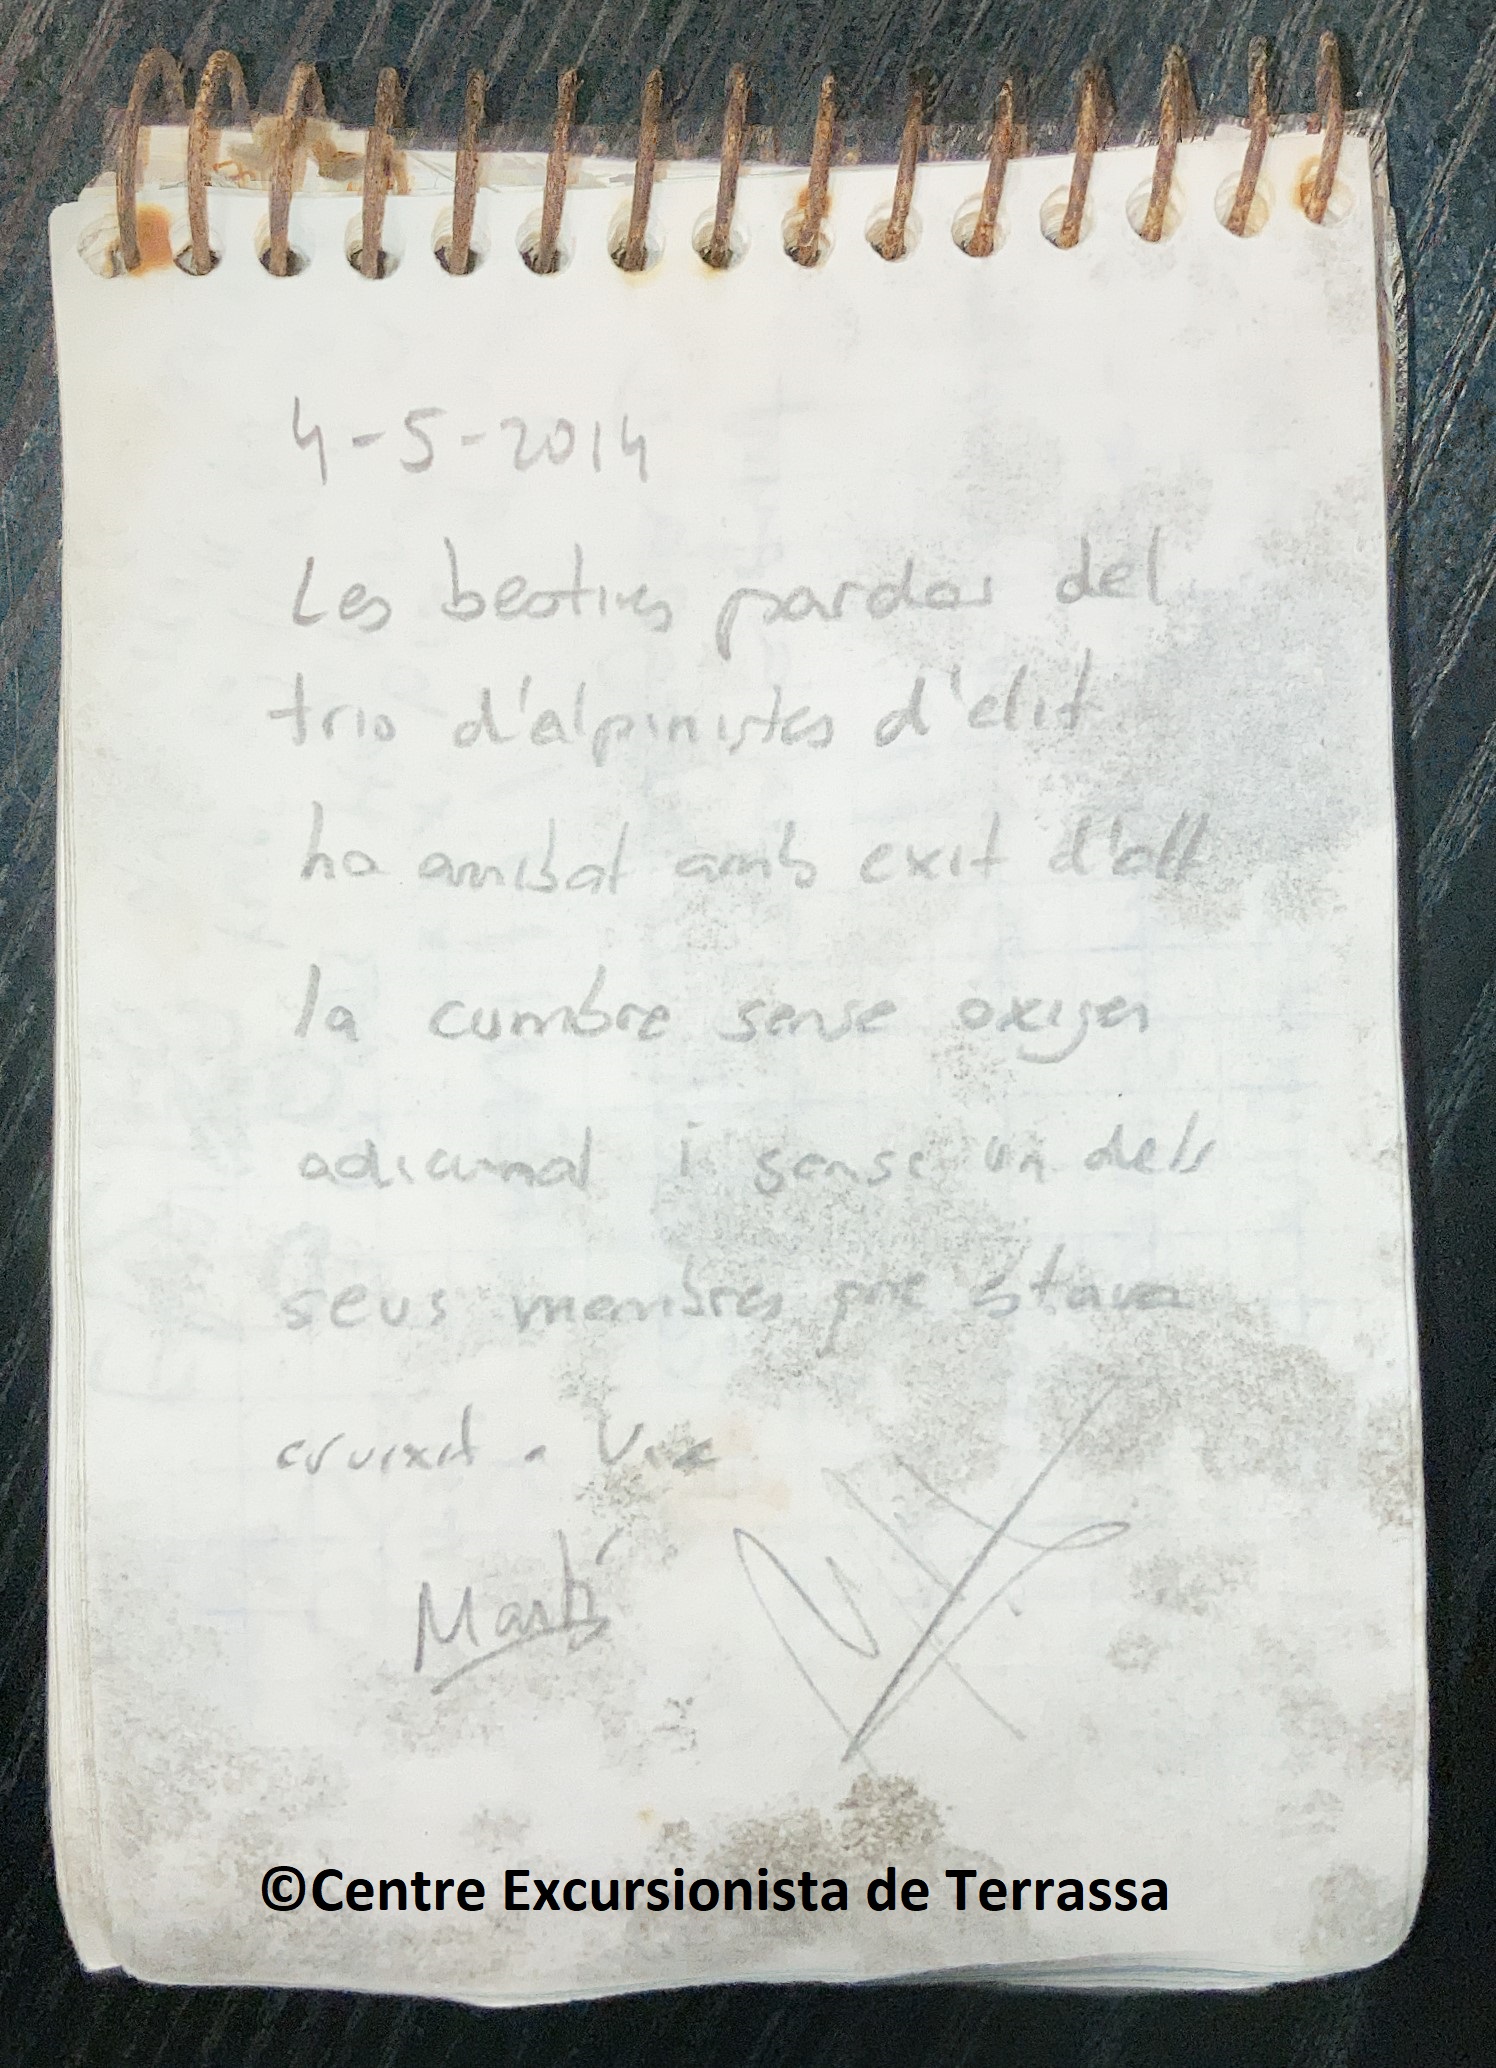 4-5-2014
Les besties pardas del
trio d'alpinistes d'elit
ha arribat amb exit d'alt
la cumbre sense oxigen
adicional i sense un dels
seus membres que estava
cruixit.
Martí
©Centre Excursionista de Terrassa